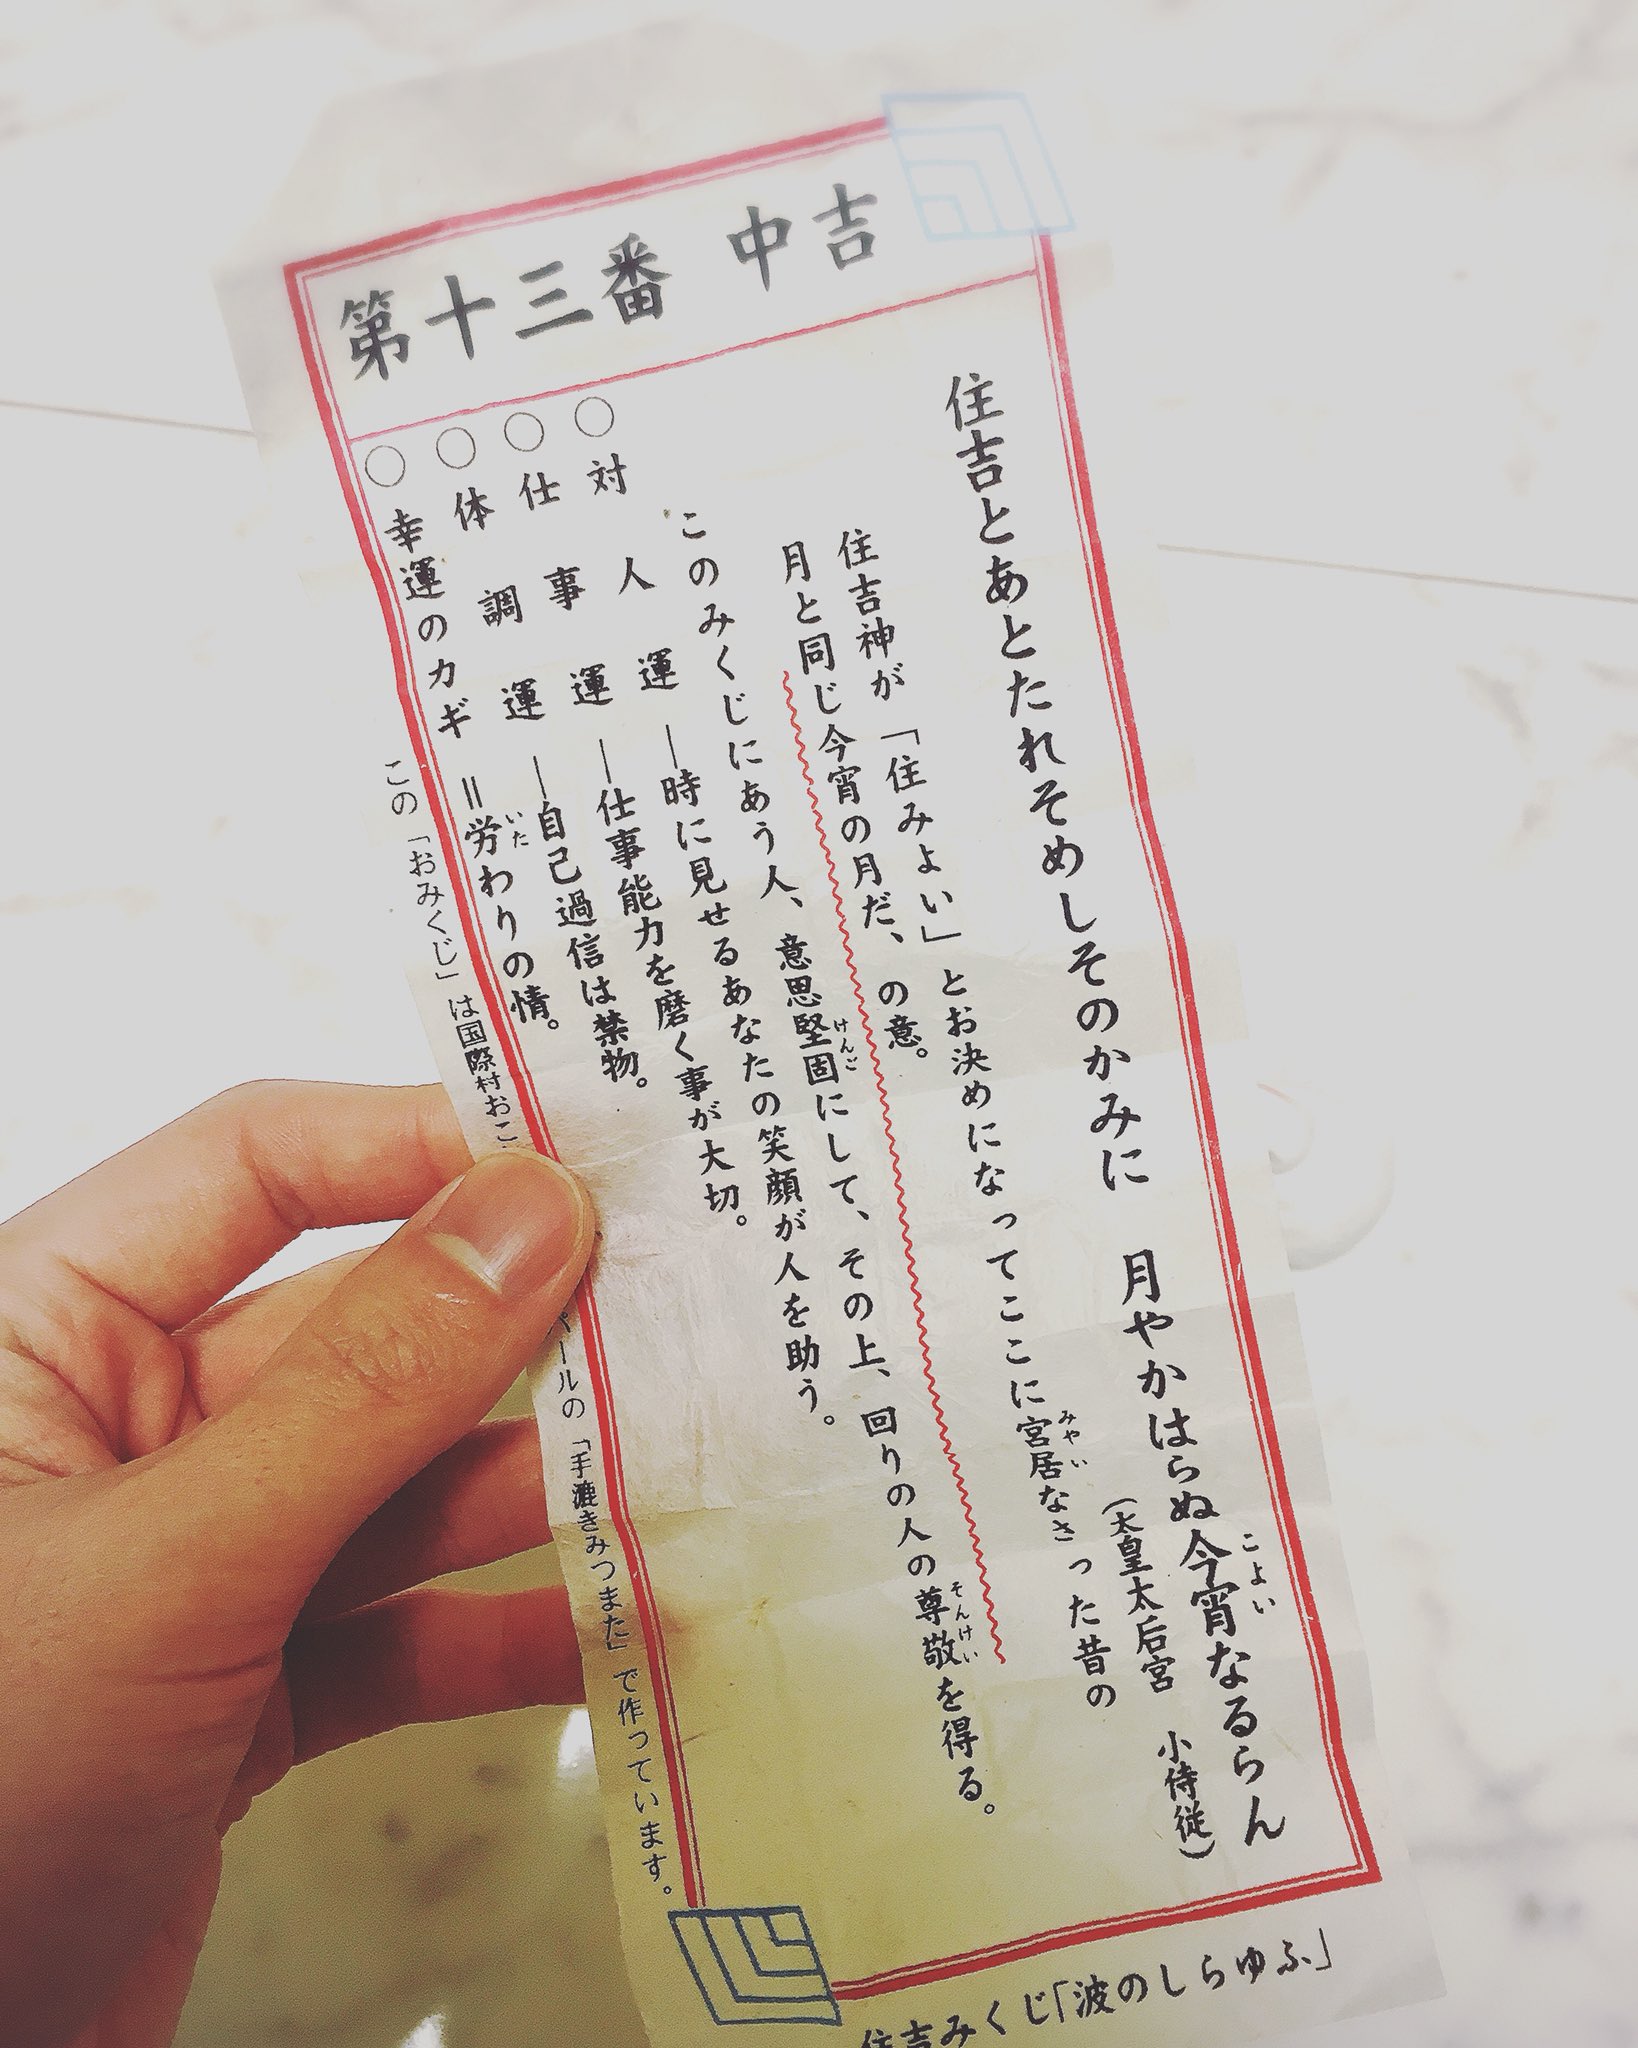 第十三番 中吉
住吉とあとたれそめしそのかみに 月やかはらぬ今宵なるらん
こよい
(太皇太后宮 小侍従)
住吉神が「住みよい」とお決めになってここに宮居なさった昔の
みやい
月と同じ今宵の月だ、の意。
このみくじにあう人、意思堅固にして、その上、回りの人の尊敬を得る。
けんご
そんけい
○対人運―時に見せるあなたの笑顔が人を助う。
○仕事運―仕事能力を磨く事が大切。
○体調運―自己過信は禁物。
○幸運のカギ=労わりの情。
いた
この「おみくじ」は国際村おこ
パールの「手漉きみつまた」で作っています。
住吉みくじ「波のしらゆふ」